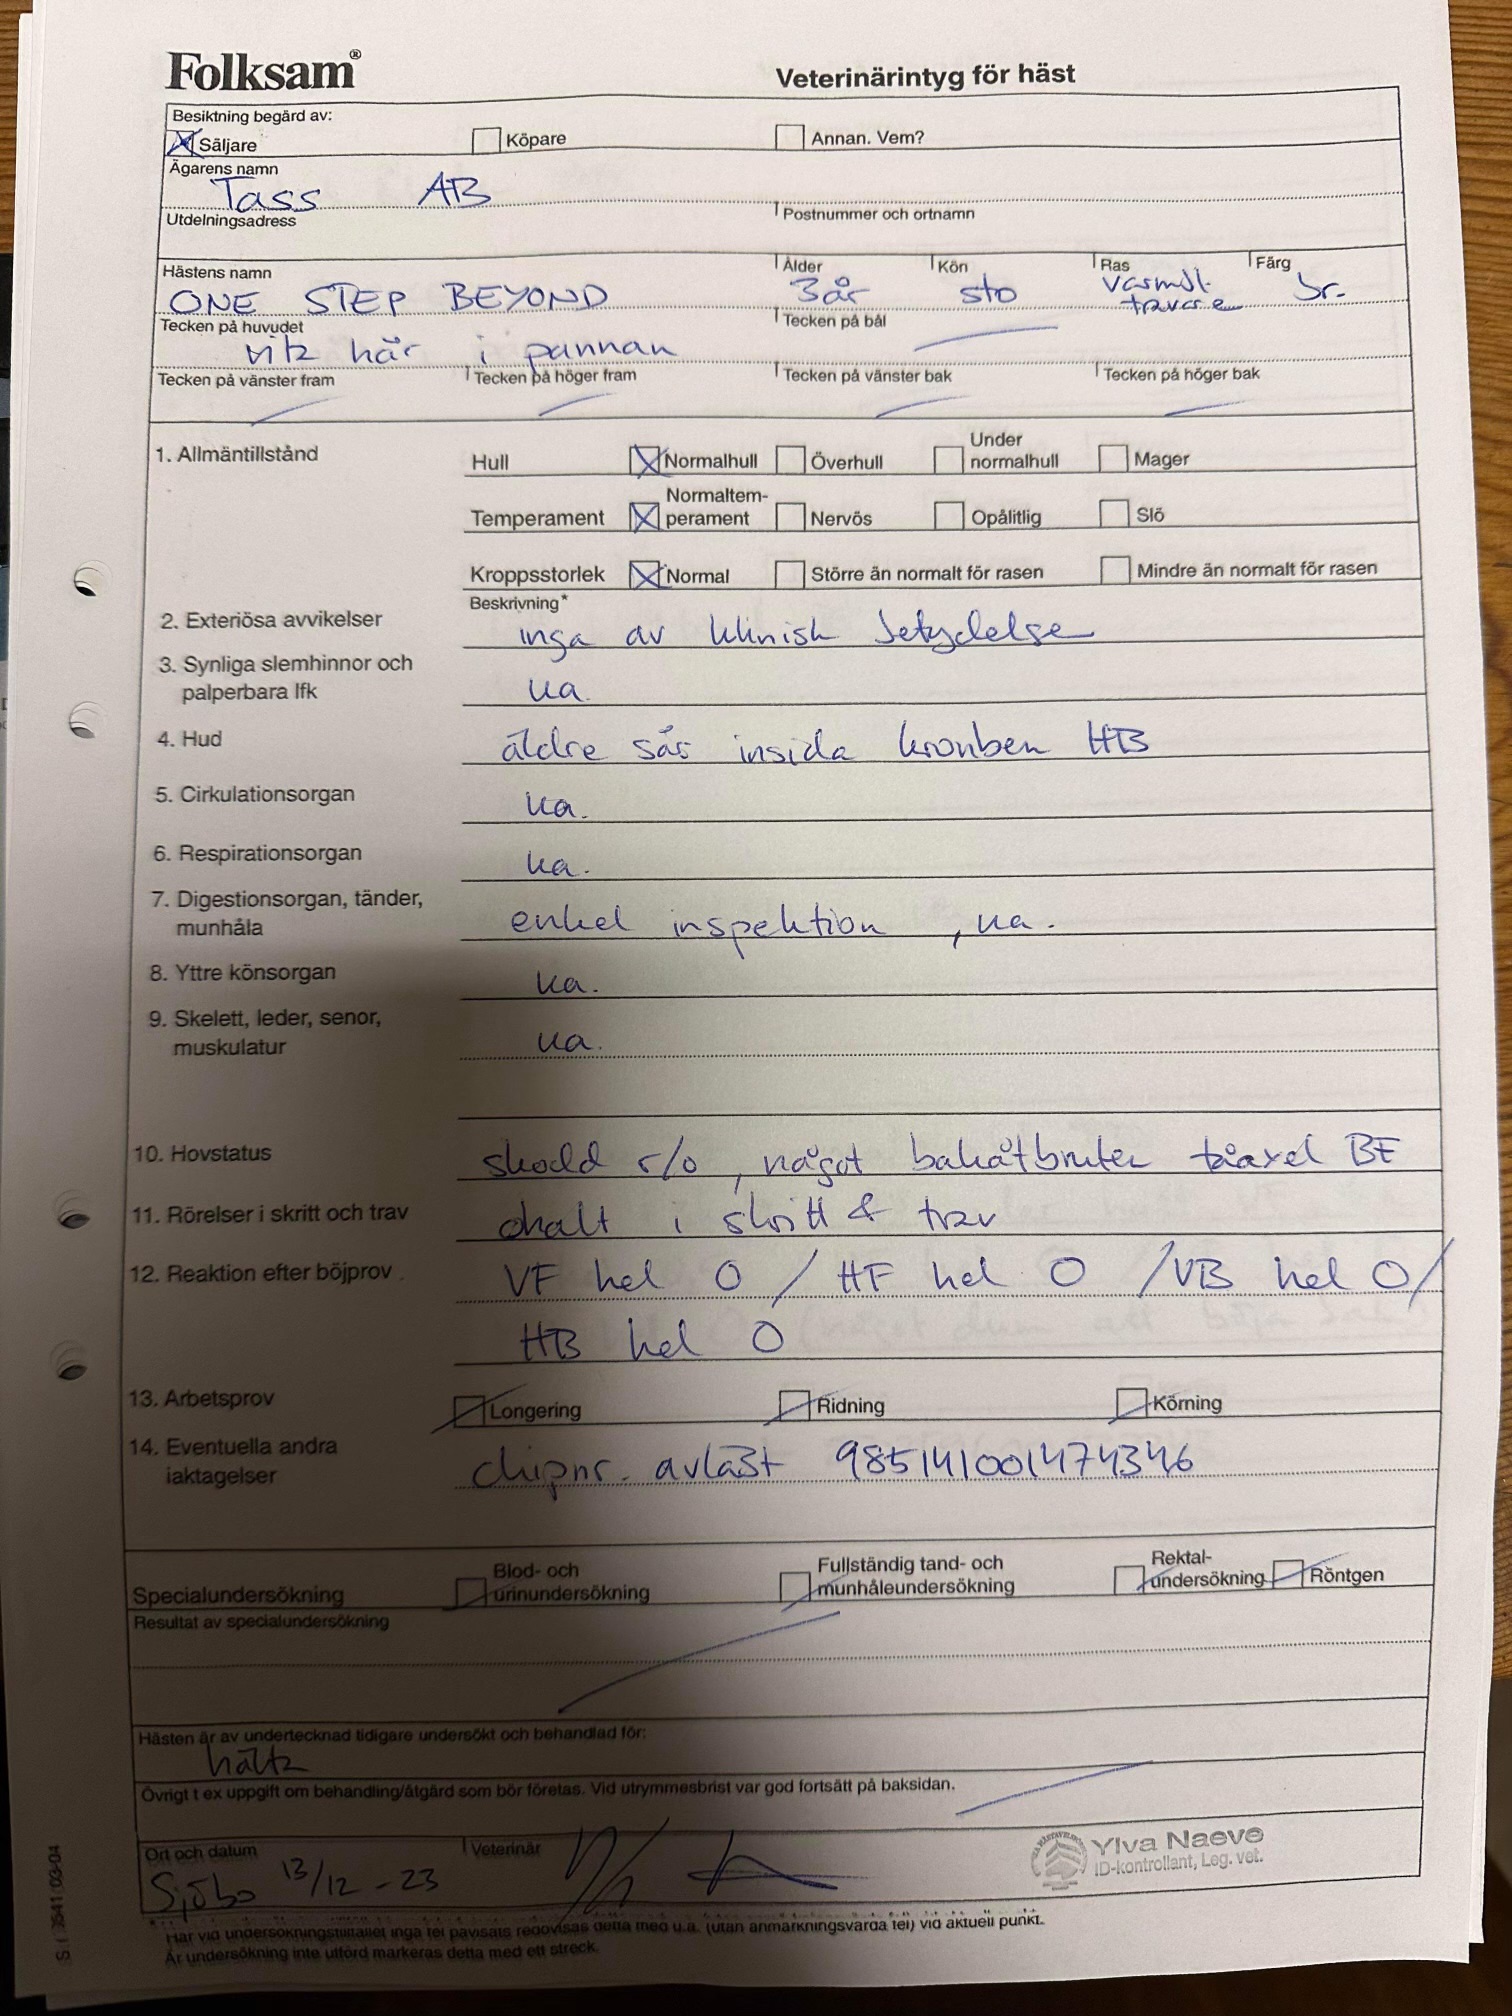 Folksam®
Veterinärintyg för häst
Besiktning begärd av:
Säljare Köpare Annan. Vem?
Ägarens namn
Tass AB
Utdelningsadress Postnummer och ortnamn
Hästens namn Ålder Kön Ras Färg
ONE STEP BEYOND 3 år sto varmbl. travare br.
Tecken på huvudet Tecken på bål
vita hår i pannan
Tecken på vänster fram Tecken på höger fram Tecken på vänster bak Tecken på höger bak
1. Allmäntillstånd Hull Normalhull Överhull Under normalhull Mager
Temperament Normaltem-perament Nervös Opålitlig Slö
Kroppsstorlek Normal Större än normalt för rasen Mindre än normalt för rasen
Beskrivning*
2. Exteriösa avvikelser inga av klinisk betydelse
3. Synliga slemhinnor och
palperbara lfk ua.
4. Hud äldre sår insida kronben HB
5. Cirkulationsorgan ua.
6. Respirationsorgan ua.
7. Digestionsorgan, tänder,
munhåla enkel inspektion, ua.
8. Yttre könsorgan ua.
9. Skelett, leder, senor,
muskulatur ua.
10. Hovstatus skodd r/o, något bakåtbruten tåaxel BF
11. Rörelser i skritt och trav ohalt i skritt & trav
12. Reaktion efter böjprov VF hel 0 / HF hel 0 / VB hel 0/
HB hel 0
13. Arbetsprov Longering Ridning Körning
14. Eventuella andra
iaktagelser chipnr. avläst 985141001474346
Specialundersökning Blod- och urinundersökning Fullständig tand- och munhåleundersökning Rektal-undersökning Röntgen
Resultat av specialundersökning
Hästen är av undertecknad tidigare undersökt och behandlad för:
hälta
Övrigt t ex uppgift om behandling/åtgärd som bör företas. Vid utrymmesbrist var god fortsätt på baksidan.
Ort och datum Veterinär
Sjöbo 13/12 - 23
Ylva Naeve
ID-kontrollant, Leg. vet.
* Har vid undersökningstillfället inga fel påvisats redovisas detta med u.a. (utan anmärkningsvärda fel) vid aktuell punkt.
Är undersökning inte utförd markeras detta med ett streck.